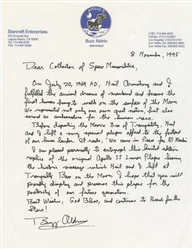 Starcraft Enterprises
Buzz Aldrin
Astronaut
8 November, 1995
Dear Collectors of Space Memorabilia,
On July 20, 1969 AD, Neil Armstrong and I
fulfilled the ancient dreams of mankind and became the
first human beings to walk on the surface of the Moon.
We represented not only our own great nation but also
served as ambassadors for the human race.
Before departing the Moon's Sea of Tranquility, Neil
and I left a very special plaque affixed to the ladder
of our Lunar Lander. It reads, "We came in Peace for All Mankind"
I am pleased personally to autograph this limited edition
replica of the original Apollo 11 Lunar Plaque bearing
the historic message which Neil and I left at
Tranquility Base on the Moon. I hope that you will
proudly display and preserve this plaque for the
posterity of our future generations.
Best Wishes, God Bless, and continue to Reach for the
Stars!
Buzz Aldrin